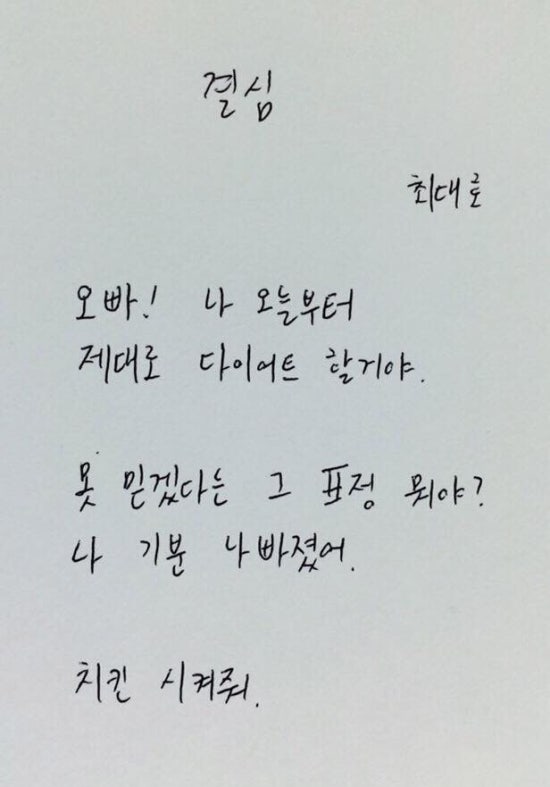 결심
최대호
오빠! 나 오늘부터
제대로 다이어트 할거야.
못 믿겠다는 그 표정 뭐야?
나 기분 나빠졌어.
치킨 시켜줘.